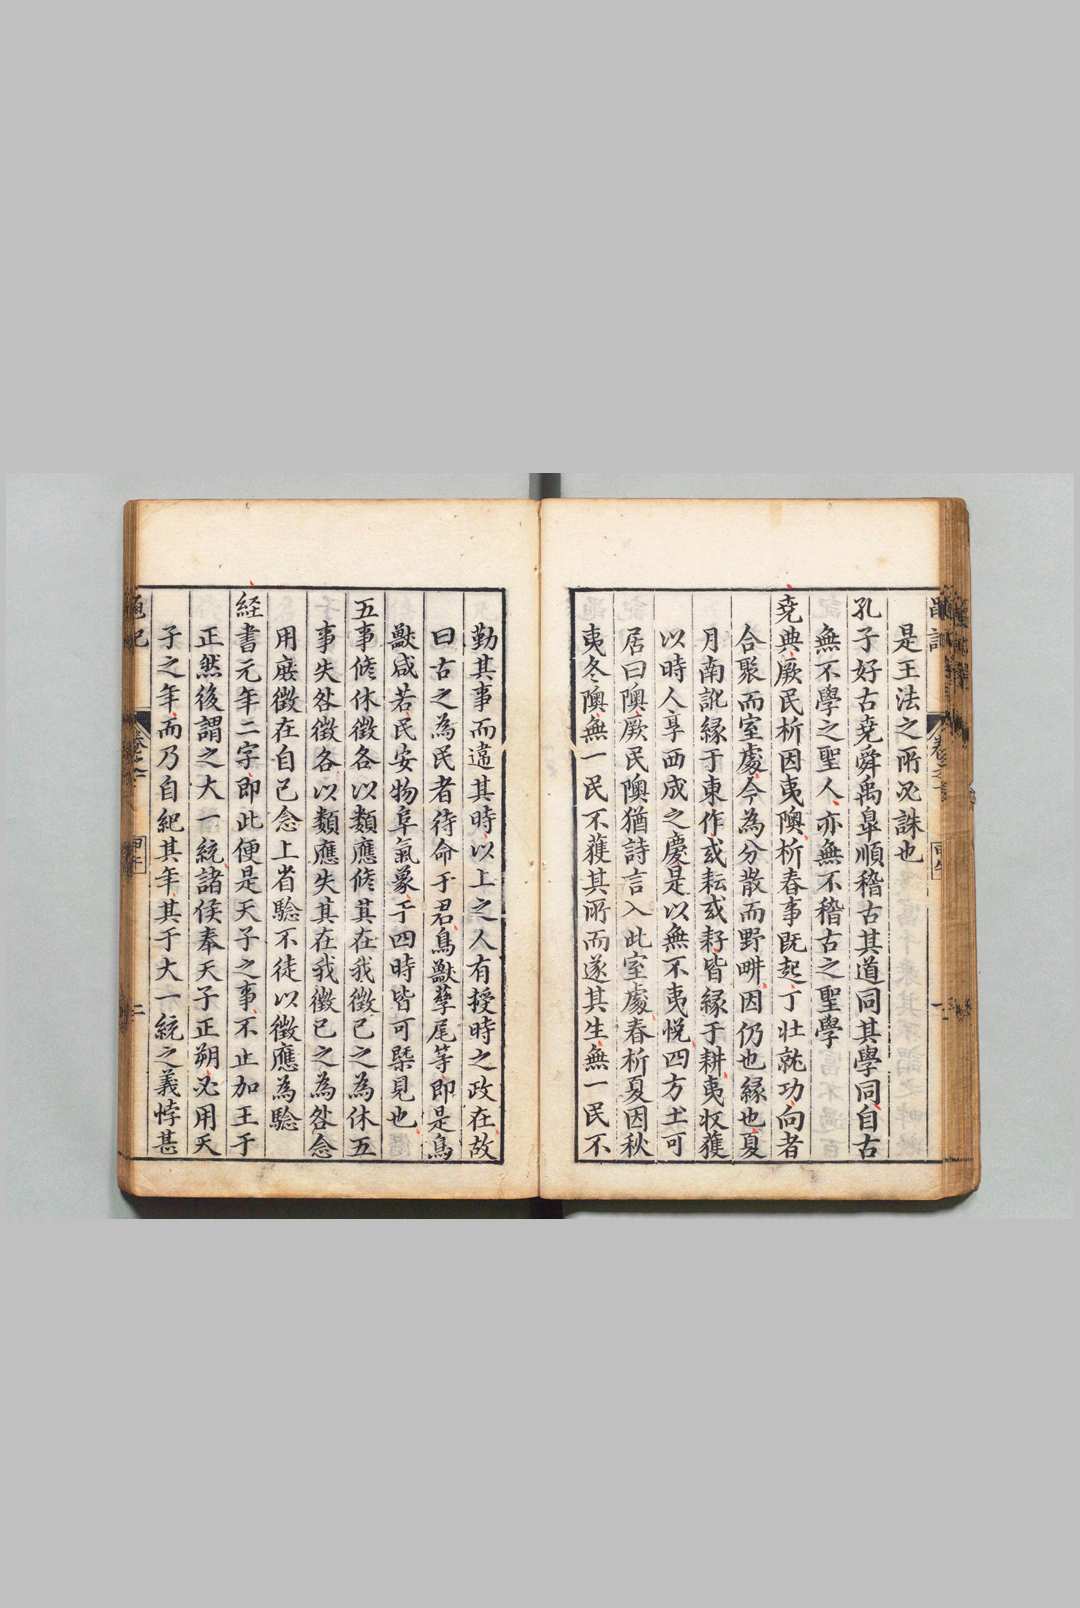 是王法之所必誅也
孔子好古堯舜禹臯順稽古其道同其學同自古
無不學之聖人亦無不稽古之聖學
堯典厥民析因夷隩析春事既起丁壯就功向者
合聚而室處今為分散而野畊因仍也緣也夏
月南訛緣于東作或耘或耔皆緣于耕夷收獲
以時人享西成之慶是以無不夷悅四方土可
居曰隩厥民隩猶詩言入此室處春析夏因秋
夷冬隩無一民不獲其所而遂其生無一民不
勤其事而違其時以上之人有授時之政在故
曰古之為民者待命于君鳥獸孳尾等即是鳥
獸咸若民安物阜氣象于四時皆可槩見也
五事修休徵各以類應修其在我徵已之為休五
事失咎徵各以類應失其在我徵已之為咎念
用庶徵在自己念上省驗不徒以徵應為驗
経書元年二字即此便是天子之事不止加王于
正然後謂之大一統諸侯奉天子正朔必用天
子之年而乃自紀其年其于大一統之義悖甚